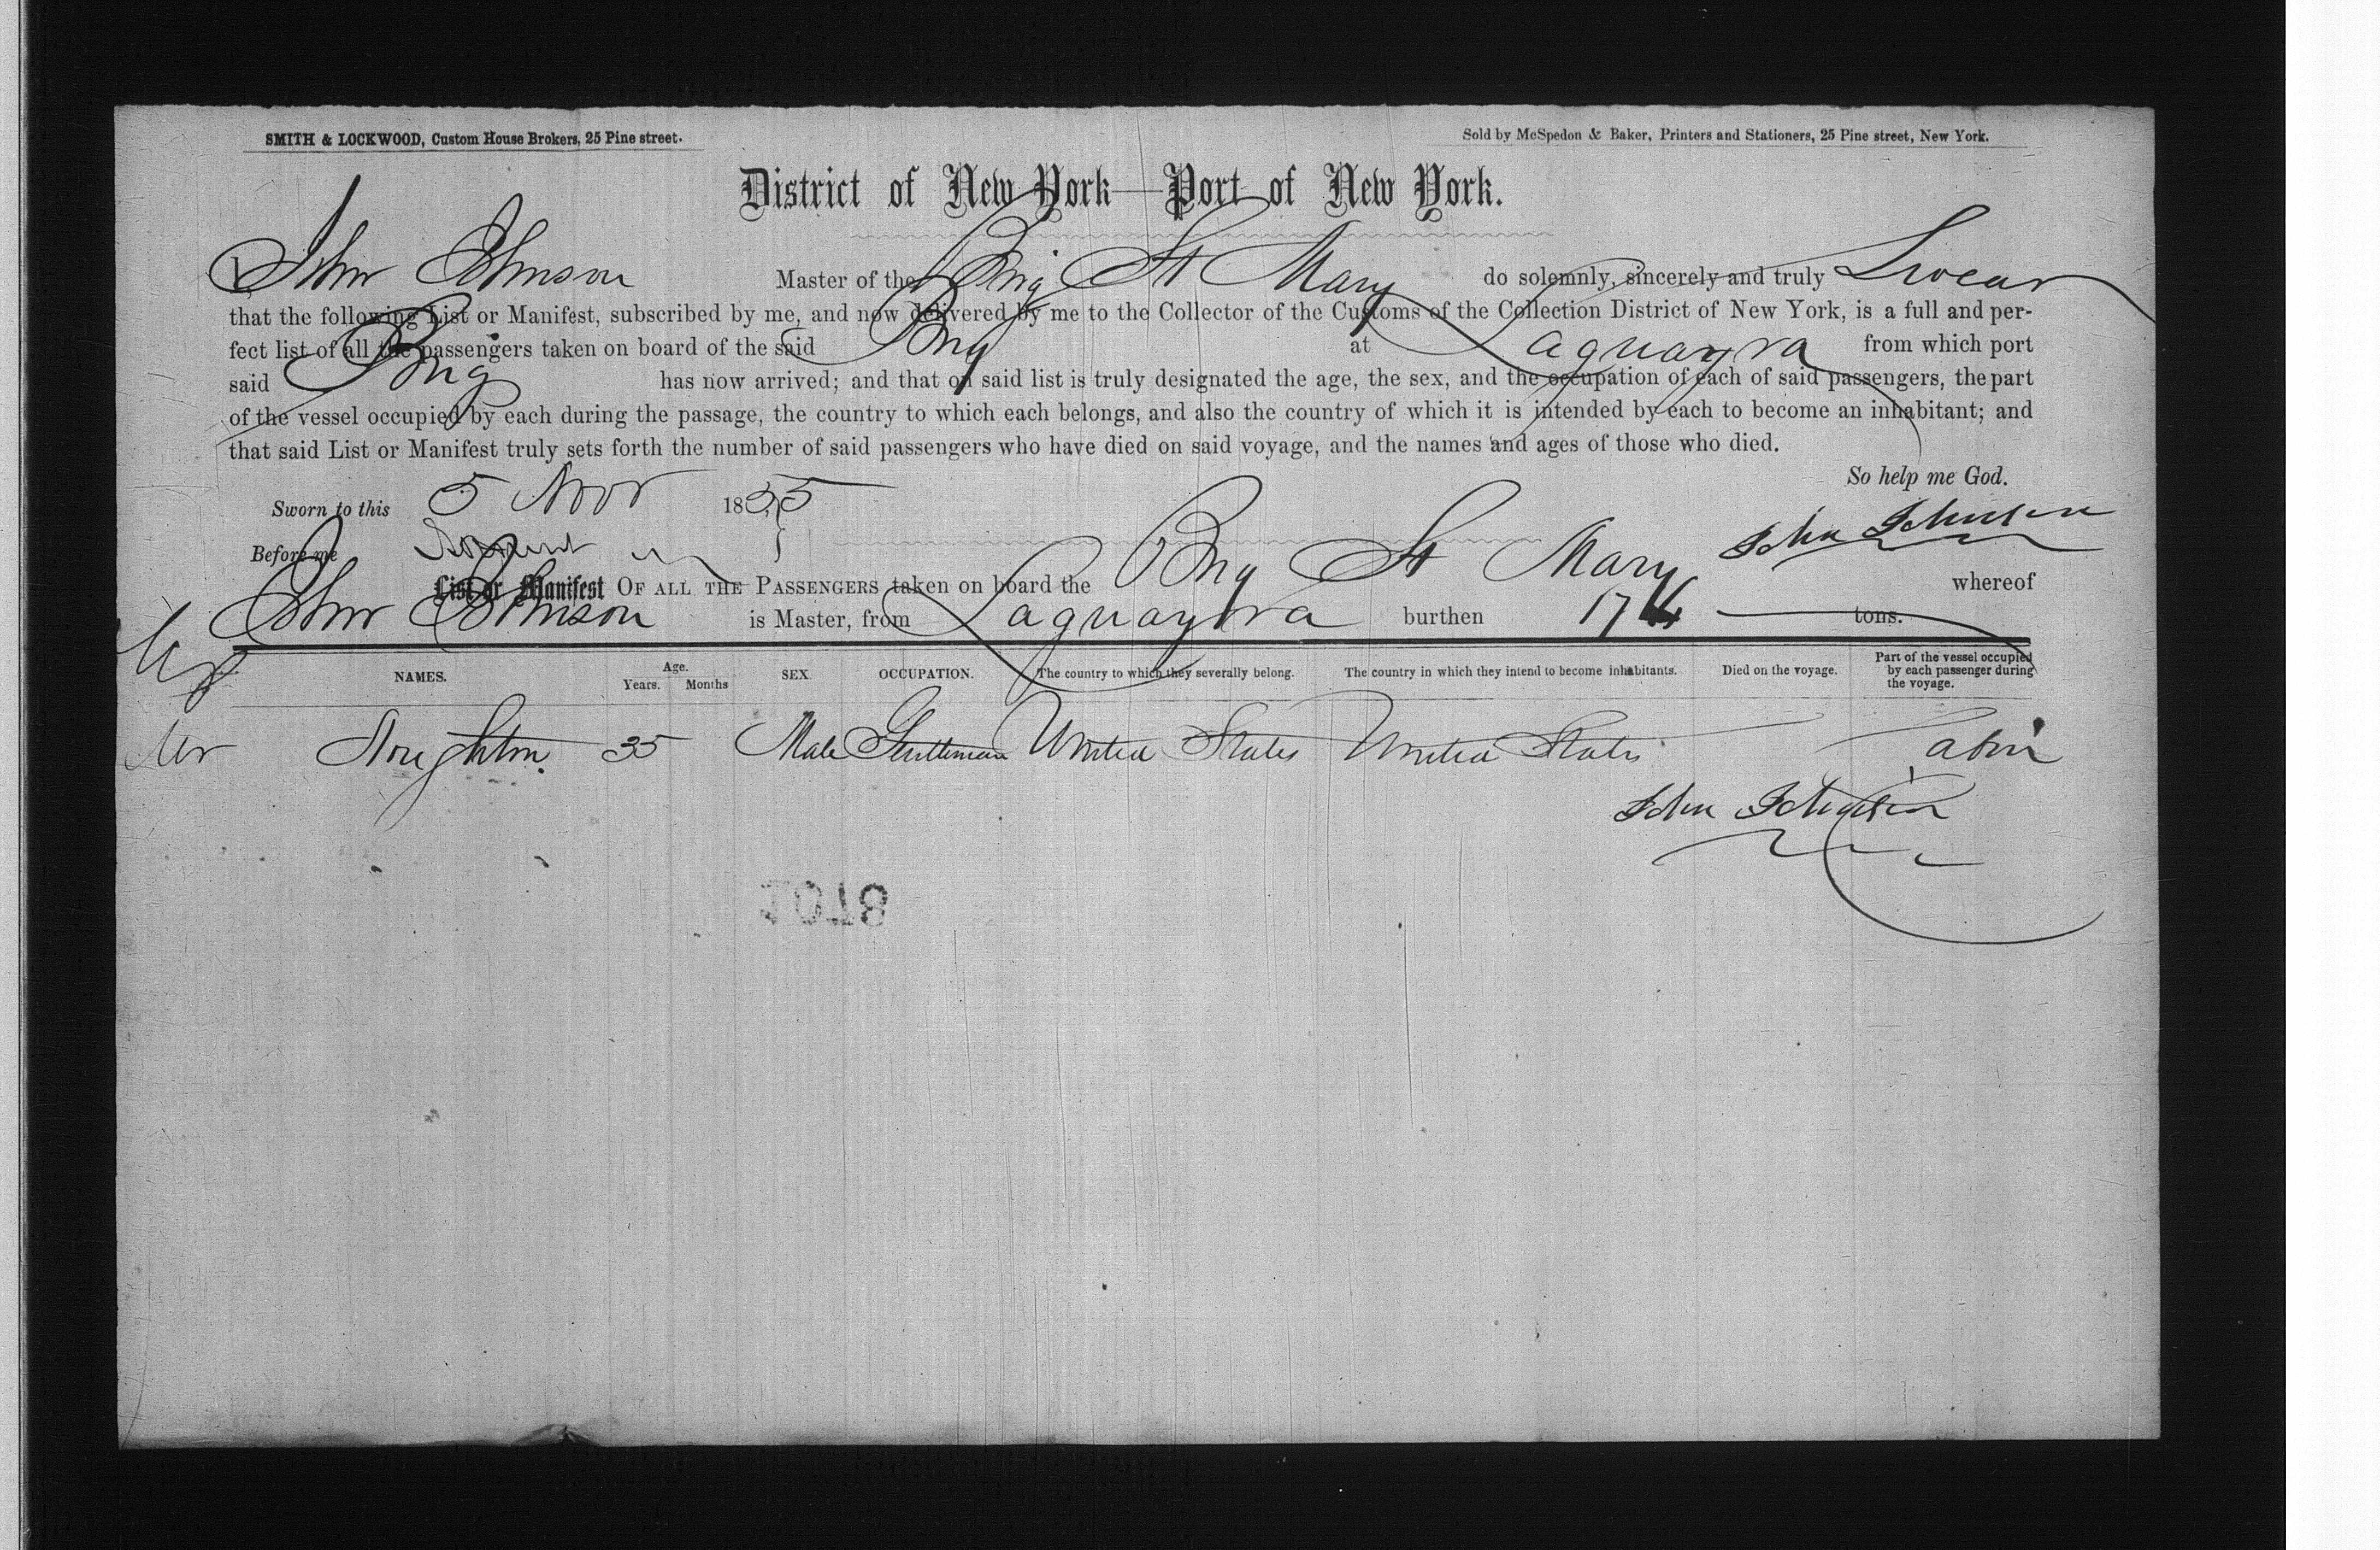 SMITH & LOCKWOOD, Custom House Brokers, 25 Pine street.
Sold by McSpedon & Baker, Printers and Stationers, 25 Pine street, New York.
District of New York—Port of New York.
I, John Johnson Master of the Brig St Mary do solemnly, sincerely and truly Swear
that the following List or Manifest, subscribed by me, and now delivered by me to the Collector of the Customs of the Collection District of New York, is a full and per-
fect list of all the passengers taken on board of the said Brig at Laguayra from which port
said Brig has now arrived; and that on said list is truly designated the age, the sex, and the occupation of each of said passengers, the part
of the vessel occupied by each during the passage, the country to which each belongs, and also the country of which it is intended by each to become an inhabitant; and
that said List or Manifest truly sets forth the number of said passengers who have died on said voyage, and the names and ages of those who died.
So help me God.
Sworn to this 5 Nov 1855
Before me
John Johnson
List or Manifest OF ALL THE PASSENGERS taken on board the Brig St Mary whereof
John Johnson is Master, from Laguayra burthen 174 tons.
NAMES. Age. Years. Months SEX. OCCUPATION. The country to which they severally belong. The country in which they intend to become inhabitants. Died on the voyage. Part of the vessel occupied by each passenger during the voyage.
Mr 35 Male Gentleman United States United States Cabin
John Johnson